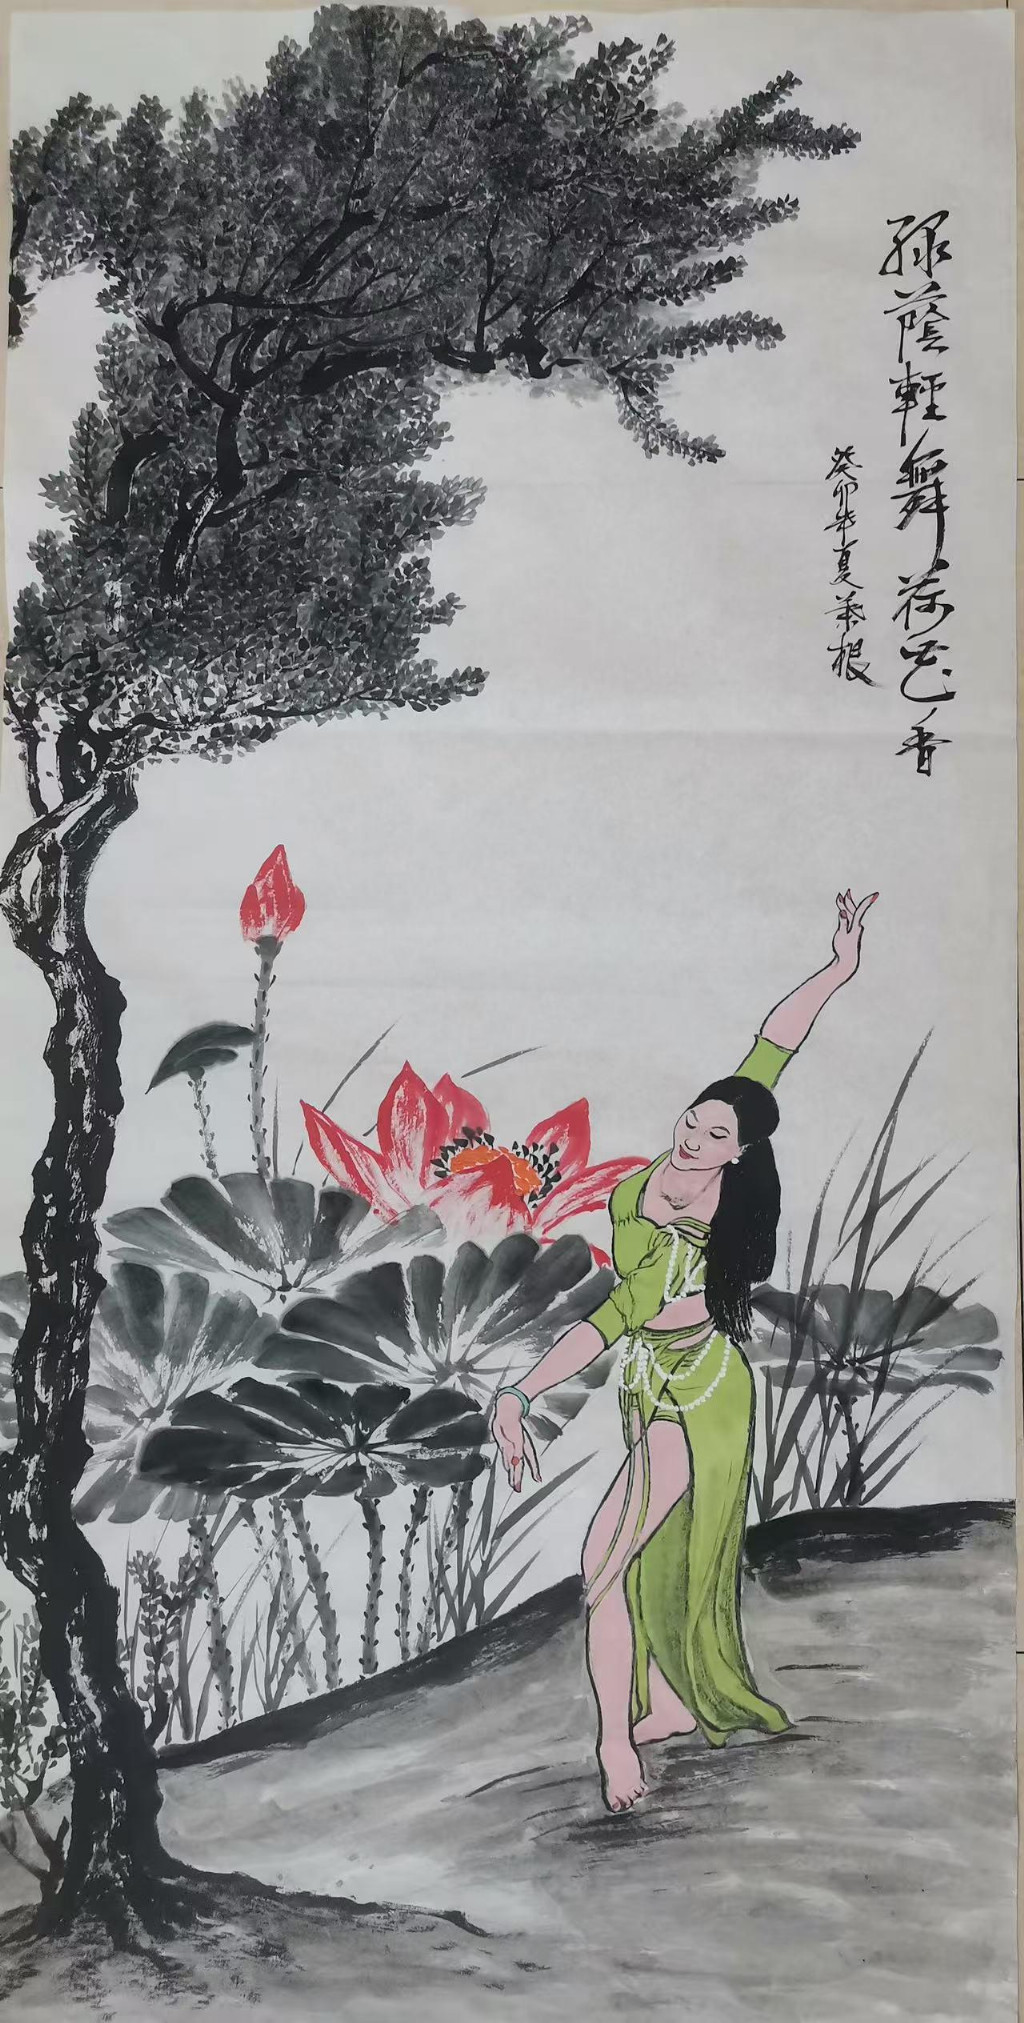 绿蔭輕舞荷花香
癸卯年夏荣根